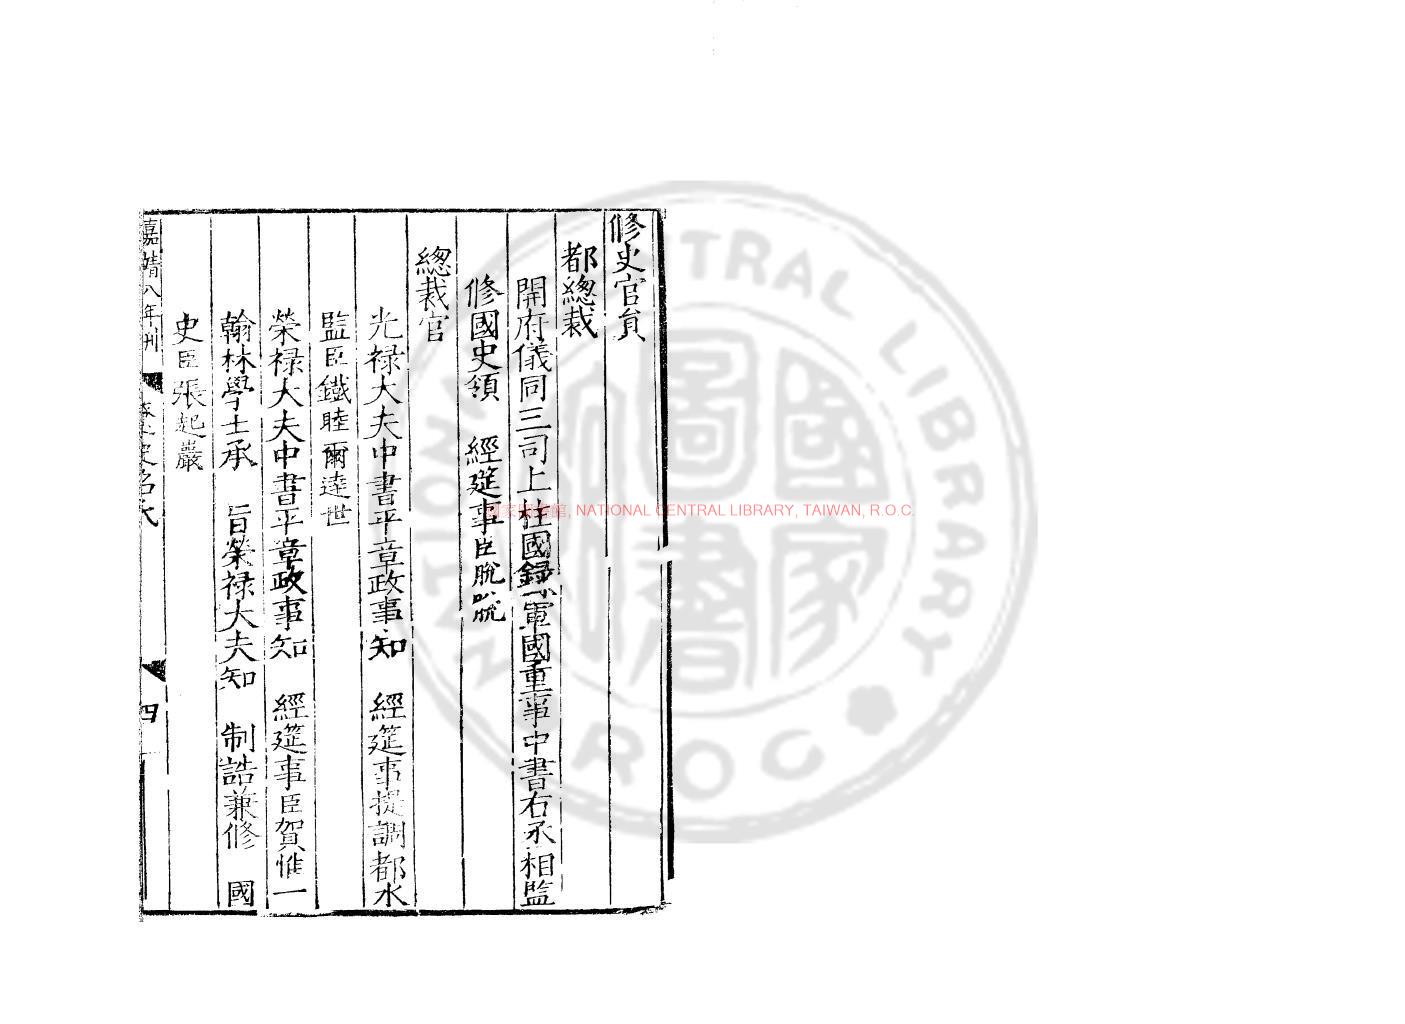 修史官員
都總裁
開府儀同三司上柱國録軍國重事中書右丞相監
修國史領 經筵事臣脫脫
總裁官
光禄大夫中書平章政事知 經筵事提調都水
監臣鐵睦爾達世
榮禄大夫中書平章政事知 經筵事臣賀惟一
翰林學士承 旨榮禄大夫知 制誥兼修 國
史臣張起巖
嘉靖八年刊
史名氏
四
國家圖書館, NATIONAL CENTRAL LIBRARY, TAIWAN, R.O.C.
NATIONAL CENTRAL LIBRARY
ROC
國家圖書